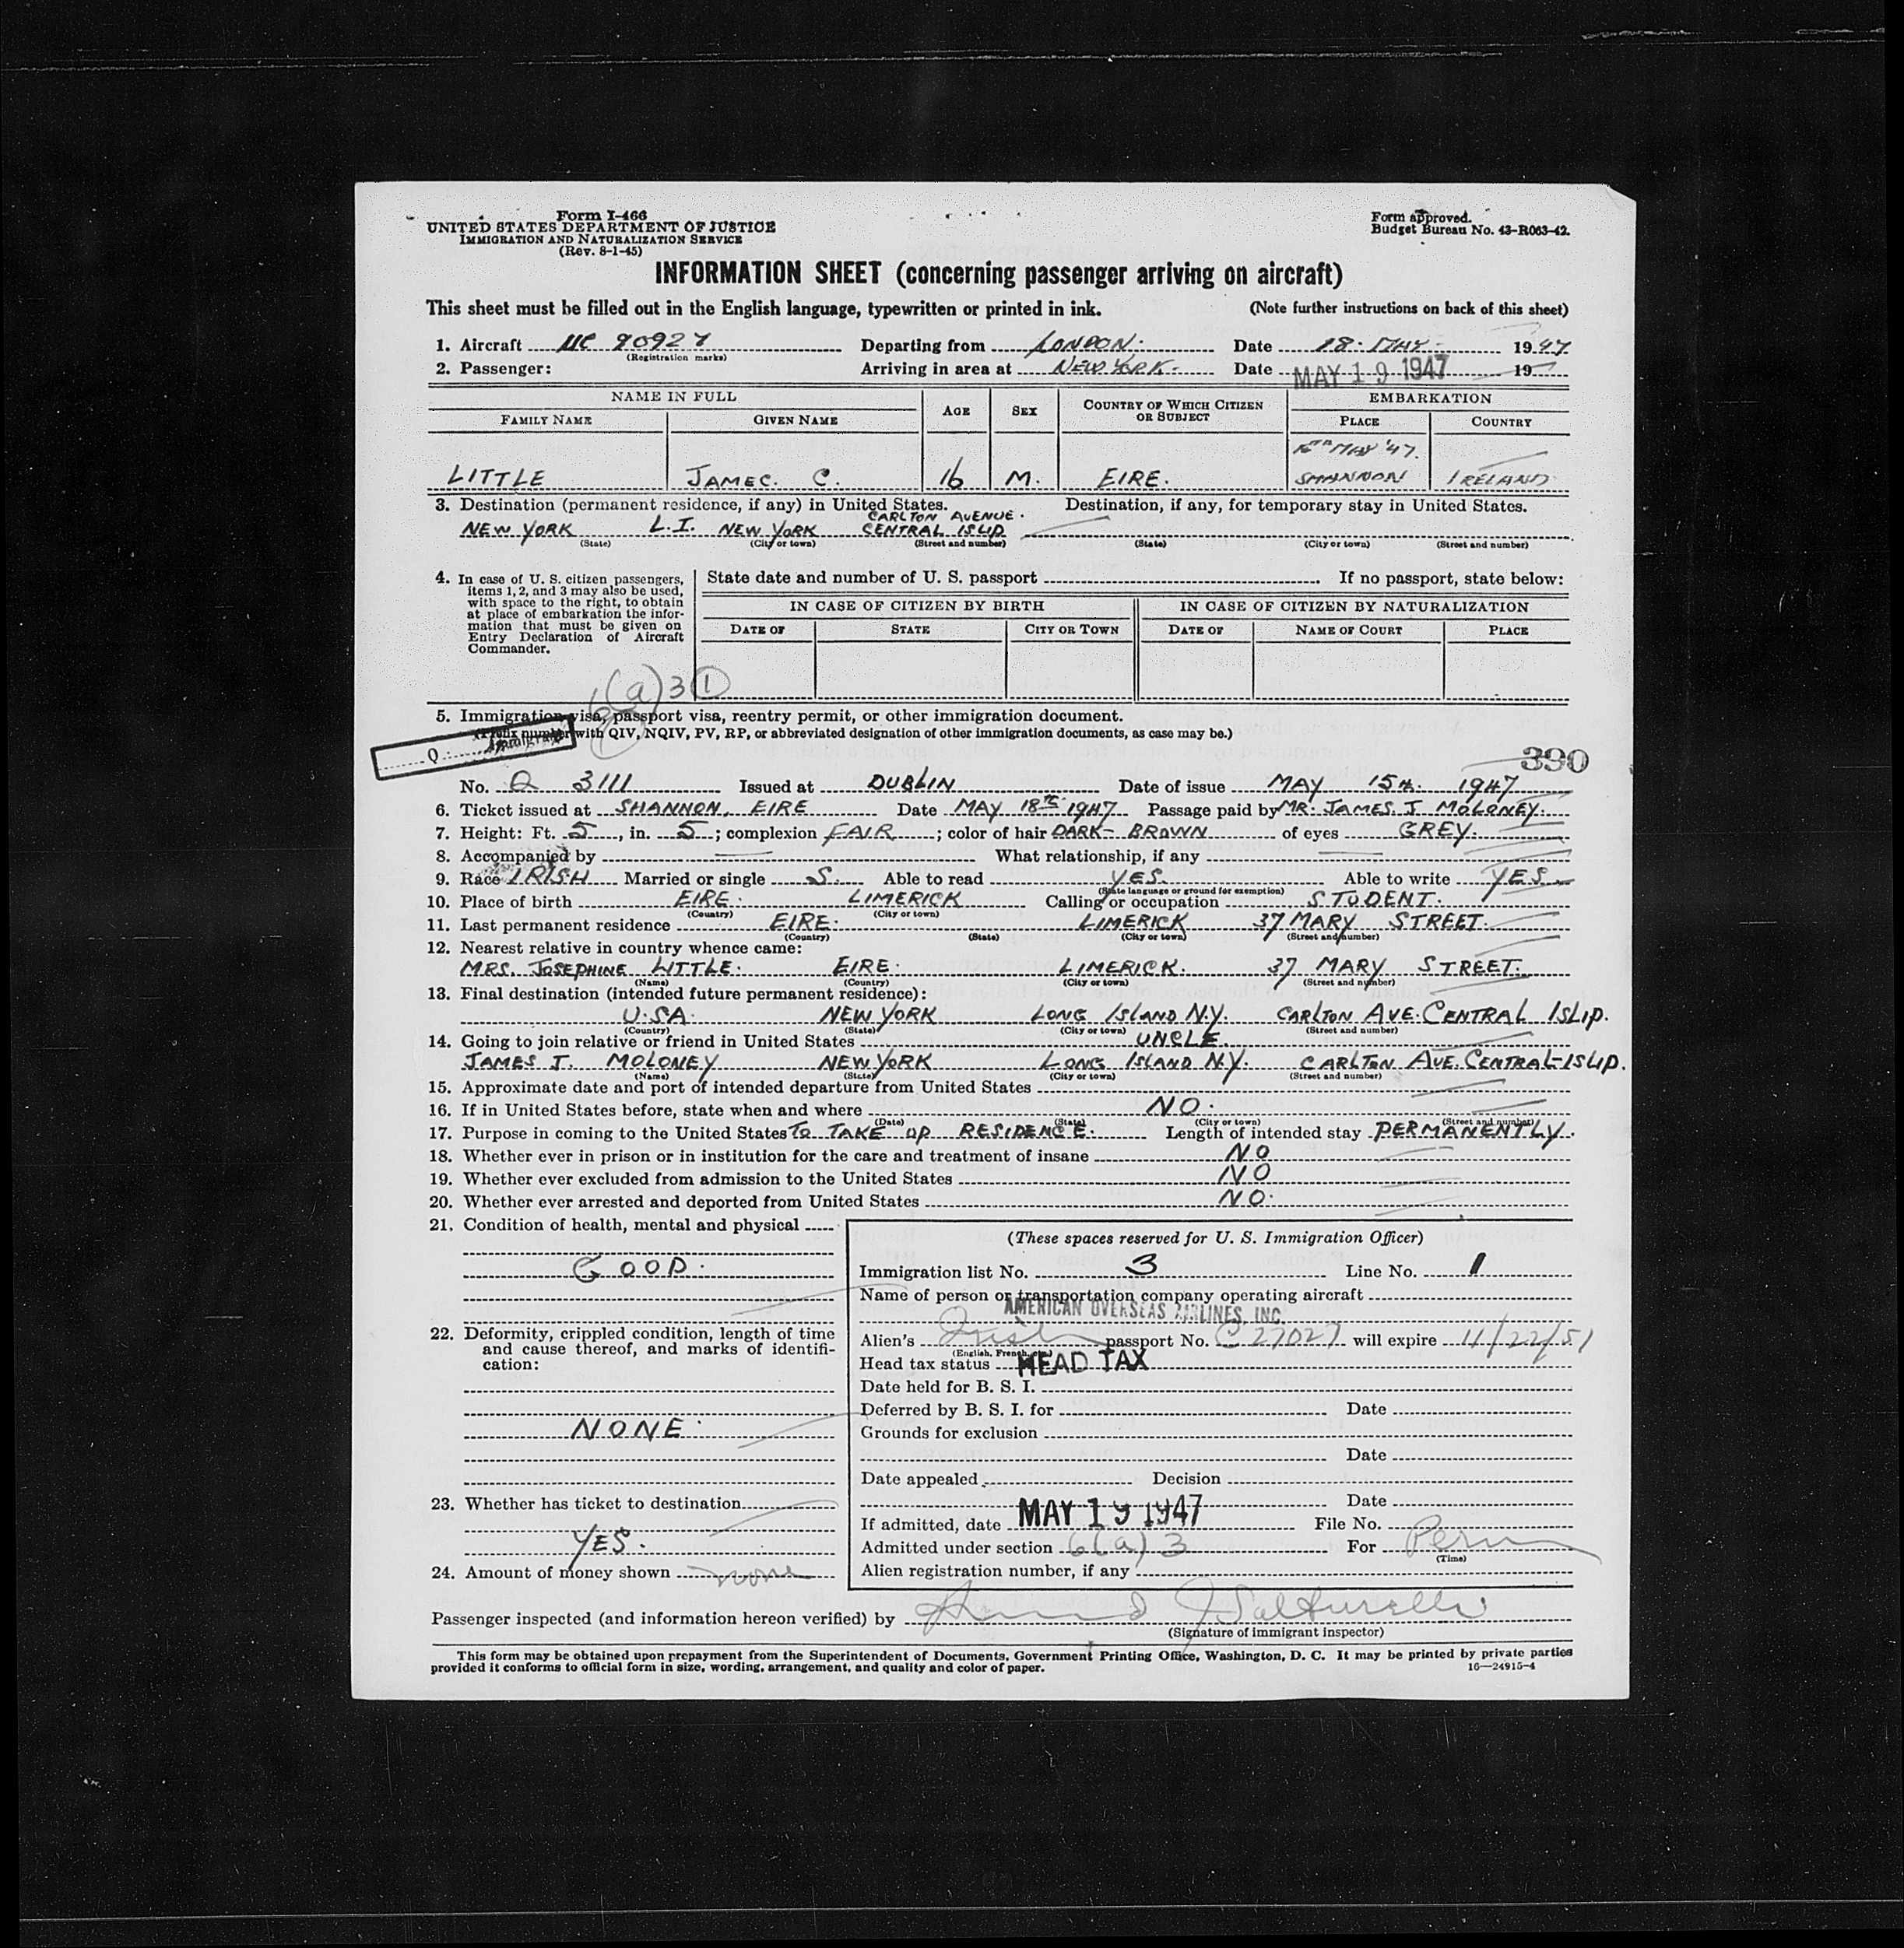 Form I-466
UNITED STATES DEPARTMENT OF JUSTICE
IMMIGRATION AND NATURALIZATION SERVICE
(Rev. 8-1-45)
Form approved.
Budget Bureau No. 43-R063-42.
INFORMATION SHEET (concerning passenger arriving on aircraft)
This sheet must be filled out in the English language, typewritten or printed in ink. (Note further instructions on back of this sheet)
1. Aircraft NC 90927 Departing from LONDON. Date 18. MAY 1947
(Registration marks)
2. Passenger: Arriving in area at NEW YORK. Date MAY 19 1947 19
NAME IN FULL AGE SEX COUNTRY OF WHICH CITIZEN OR SUBJECT EMBARKATION
FAMILY NAME GIVEN NAME PLACE COUNTRY
MAY '47.
LITTLE JAMEC. C. 16 M. EIRE. SHANNON IRELAND
3. Destination (permanent residence, if any) in United States. Destination, if any, for temporary stay in United States.
CARLTON AVENUE.
NEW YORK L.I. NEW YORK CENTRAL ISLIP
(State) (City or town) (Street and number) (State) (City or town) (Street and number)
4. In case of U. S. citizen passengers, items 1, 2, and 3 may also be used, with space to the right, to obtain at place of embarkation the information that must be given on Entry Declaration of Aircraft Commander.
State date and number of U. S. passport . If no passport, state below:
IN CASE OF CITIZEN BY BIRTH IN CASE OF CITIZEN BY NATURALIZATION
DATE OF STATE CITY OR TOWN DATE OF NAME OF COURT PLACE
6(a)3 1
5. Immigration visa, passport visa, reentry permit, or other immigration document.
(Prefix number with QIV, NQIV, PV, RP, or abbreviated designation of other immigration documents, as case may be.)
Q Immigrant
390
No. Q 3111 Issued at DUBLIN Date of issue MAY 15th. 1947
6. Ticket issued at SHANNON, EIRE Date MAY 18th 1947 Passage paid by MR. JAMES. J. MOLONEY.
7. Height: Ft. 5, in. 5; complexion FAIR; color of hair DARK-BROWN of eyes GREY.
8. Accompanied by What relationship, if any
9. Race IRISH Married or single S. Able to read YES. Able to write YES.
(State language or ground for exemption)
10. Place of birth EIRE. LIMERICK Calling or occupation STUDENT.
(Country) (City or town)
11. Last permanent residence EIRE. LIMERICK 37 MARY STREET.
(Country) (State) (City or town) (Street and number)
12. Nearest relative in country whence came:
MRS. JOSEPHINE LITTLE. EIRE. LIMERICK. 37 MARY STREET.
(Name) (Country) (City or town) (Street and number)
13. Final destination (intended future permanent residence):
U.S.A. NEW YORK LONG ISLAND N.Y. CARLTON AVE. CENTRAL ISLIP.
(Country) (State) (City or town) (Street and number)
14. Going to join relative or friend in United States UNCLE.
JAMES J. MOLONEY NEW YORK LONG ISLAND N.Y. CARLTON AVE. CENTRAL-ISLIP.
(Name) (State) (City or town) (Street and number)
15. Approximate date and port of intended departure from United States
16. If in United States before, state when and where NO.
(Date) (State) (City or town) (Street and number)
17. Purpose in coming to the United States TO TAKE UP RESIDENCE. Length of intended stay PERMANENTLY.
18. Whether ever in prison or in institution for the care and treatment of insane NO
19. Whether ever excluded from admission to the United States NO
20. Whether ever arrested and deported from United States NO.
21. Condition of health, mental and physical
GOOD.
22. Deformity, crippled condition, length of time and cause thereof, and marks of identification:
NONE.
23. Whether has ticket to destination
YES.
24. Amount of money shown none
(These spaces reserved for U. S. Immigration Officer)
Immigration list No. 3 Line No. 1
Name of person or transportation company operating aircraft
AMERICAN OVERSEAS AIRLINES, INC.
Alien's Irish passport No. C 27027 will expire 11/22/51
(English, French, etc.)
Head tax status HEAD TAX
Date held for B. S. I.
Deferred by B. S. I. for Date
Grounds for exclusion
Date
Date appealed Decision
Date
If admitted, date MAY 19 1947 File No.
Admitted under section 6(a)3 For Perm
(Time)
Alien registration number, if any
Passenger inspected (and information hereon verified) by
(Signature of immigrant inspector)
This form may be obtained upon prepayment from the Superintendent of Documents, Government Printing Office, Washington, D. C. It may be printed by private parties
provided it conforms to official form in size, wording, arrangement, and quality and color of paper. 16—24915-4